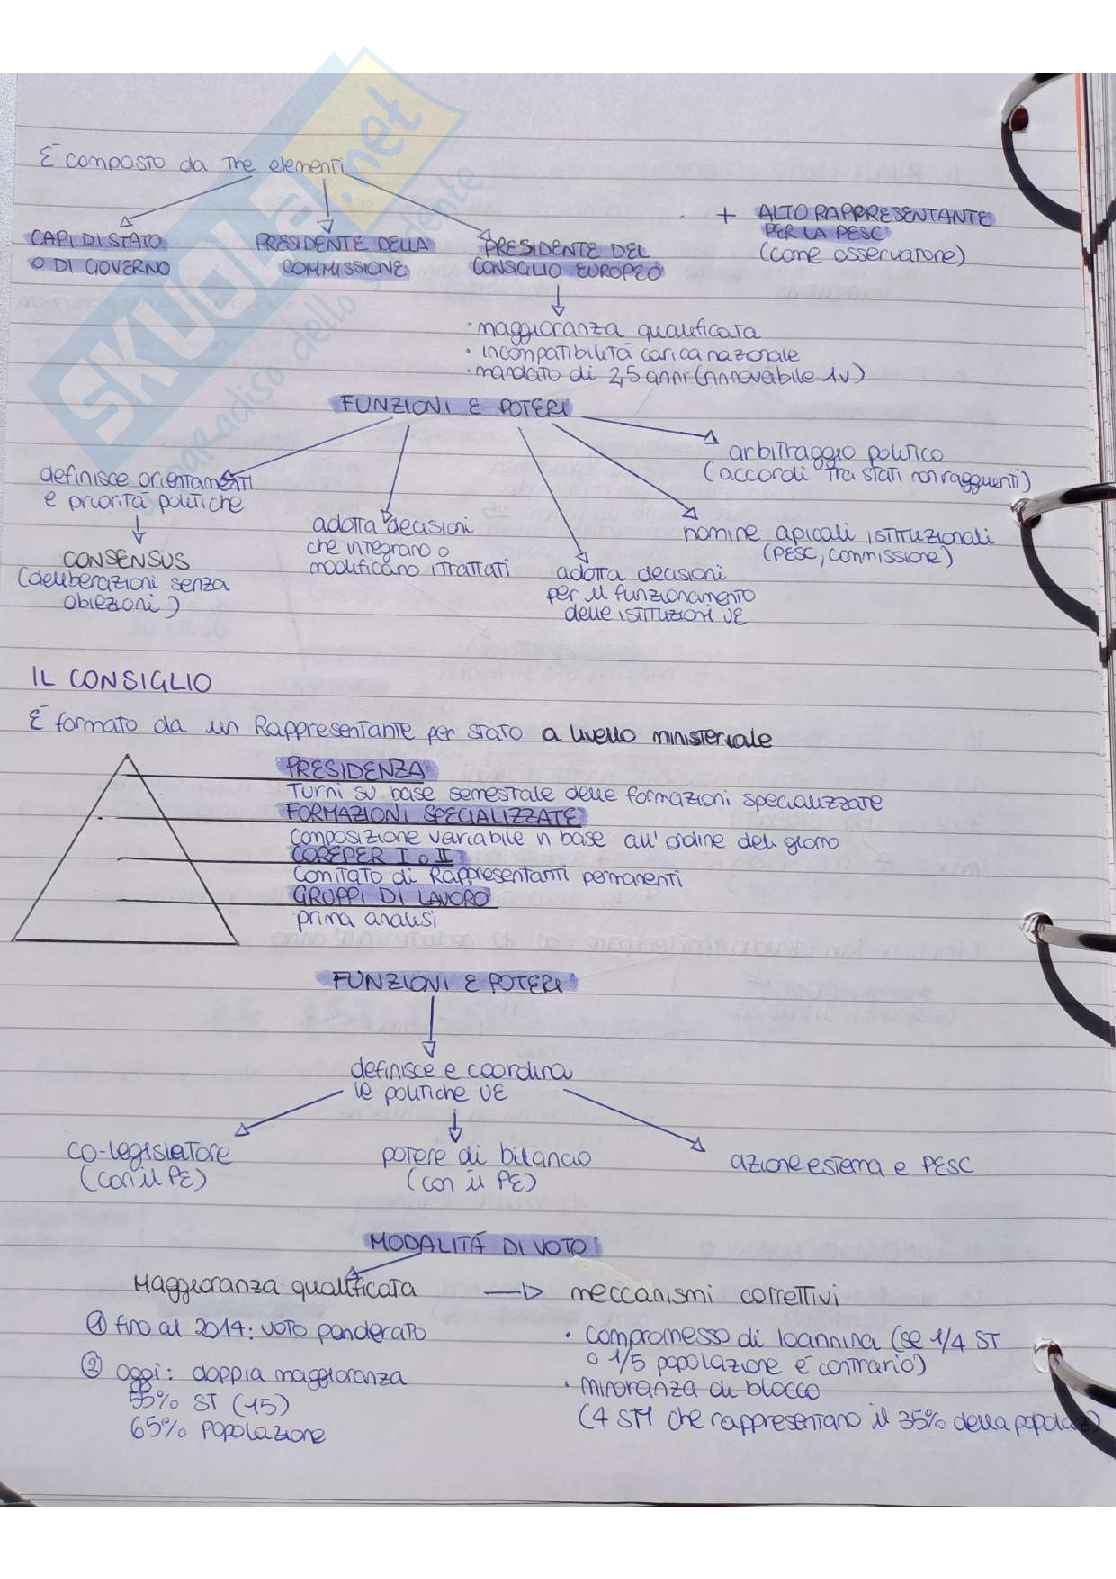 SKUOLA.net
paradiso dello studente
È composto da tre elementi
CAPI DI STATO
O DI GOVERNO
PRESIDENTE DELLA
COMMISSIONE
PRESIDENTE DEL
CONSIGLIO EUROPEO
+ ALTO RAPPRESENTANTE
PER LA PESC
(come osservatore)
· maggioranza qualificata
· incompatibilità carica nazionale
· mandato di 2,5 anni (rinnovabile 1v)
FUNZIONI E POTERI
definisce orientamenti
e priorità politiche
CONSENSUS
(deliberazioni senza
obiezioni)
adotta decisioni
che integrano o
modificano i trattati
adotta decisioni
per il funzionamento
delle istituzioni UE
nomine apicali istituzionali
(PESC, commissione)
arbitraggio politico
(accordi tra stati non raggiunti)
IL CONSIGLIO
È formato da un Rappresentante per stato a livello ministeriale
PRESIDENZA
Turni su base semestrale delle formazioni specializzate
FORMAZIONI SPECIALIZZATE
composizione variabile in base all'ordine del giorno
COREPER I o II
Comitato di Rappresentanti permanenti
GRUPPI DI LAVORO
prima analisi
FUNZIONI E POTERI
definisce e coordina
le politiche UE
co-legislatore
(con il PE)
potere di bilancio
(con il PE)
azione esterna e PESC
MODALITÁ DI VOTO
Maggioranza qualificata
① fino al 2014: voto ponderato
② oggi: doppia maggioranza
55% ST (15)
65% popolazione
meccanismi correttivi
· compromesso di Ioannina (se 1/4 ST
o 1/5 popolazione è contrario)
· minoranza di blocco
(4 STM che rappresentano il 35% della popolaz)